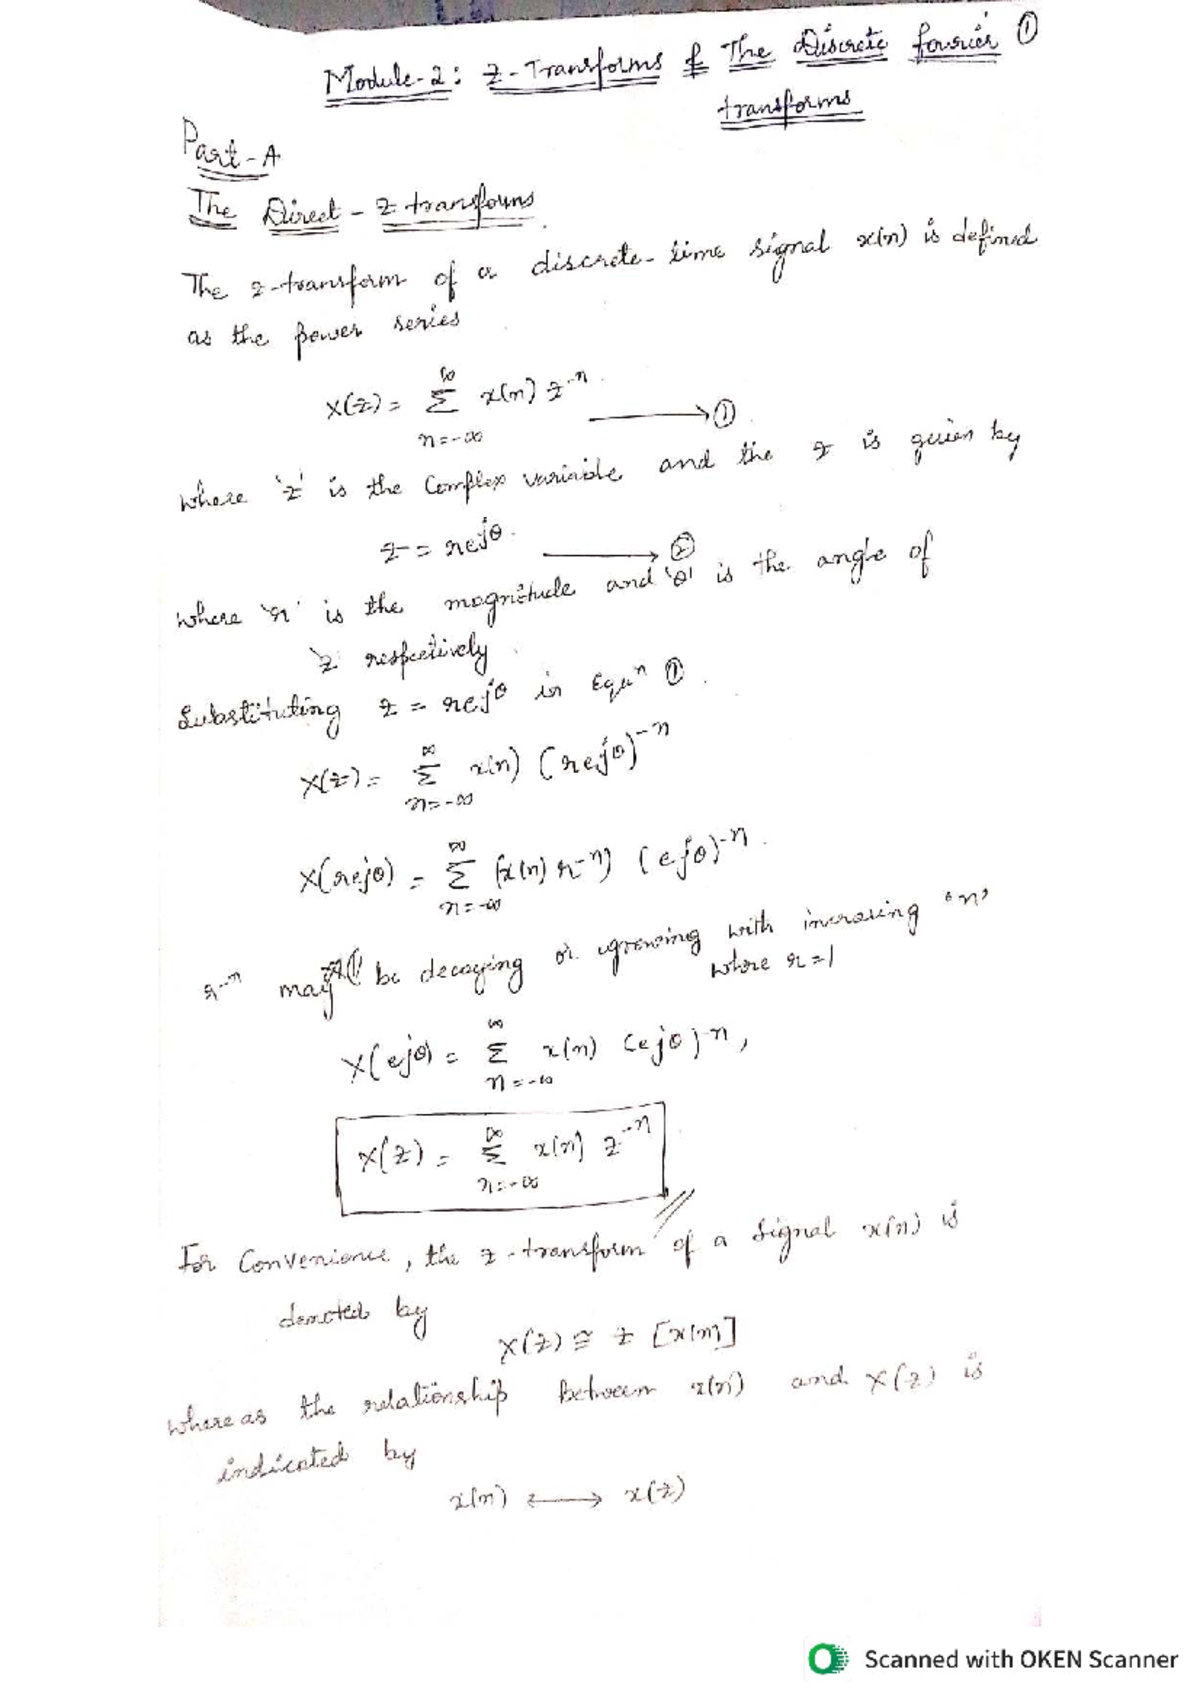 Module-2: Z-Transforms & The Discrete fourier ①
transforms
Part-A
The Direct - Z transforms
The z-transform of a discrete-time signal x(n) is defined
as the power series
X(z) = ∑_{n=-∞}^{∞} x(n) z^{-n} ⟶ ①
where 'z' is the Complex variable and the z is given by
z = re^{jθ} ⟶ ②
where 'r' is the magnitude and 'θ' is the angle of
'z' respectively
Substituting z = re^{jθ} in Equⁿ ①.
X(z) = ∑_{n=-∞}^{∞} x(n) (re^{jθ})^{-n}
X(re^{jθ}) = ∑_{n=-∞}^{∞} [x(n) r^{-n}] (e^{jθ})^{-n}
r^{-n} may be decaying or growing with increasing 'n'
where r=1
X(e^{jθ}) = ∑_{n=-∞}^{∞} x(n) (e^{jθ})^{-n},
X(z) = ∑_{n=-∞}^{∞} x(n) z^{-n}
For Convenience, the z-transform of a signal x(n) is
denoted by
X(z) ≅ z [x(n)]
where as the relationship between x(n) and X(z) is
indicated by
x(n) ⟷ x(z)
Scanned with OKEN Scanner